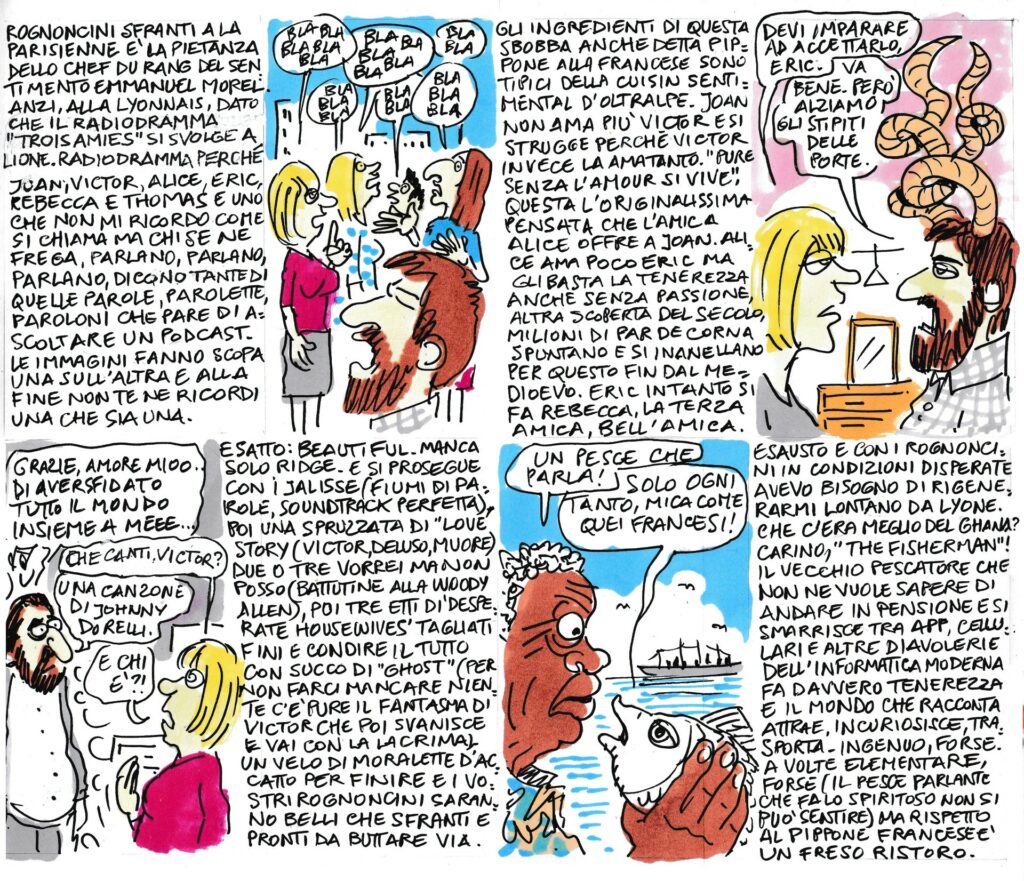 ROGNONCINI SFRANTI A LA
PARISIENNE E' LA PIETANZA
DELLO CHEF DU RANG DEL SEN-
TIMENTO EMMANUEL MOREL.
ANZI, ALLA LYONNAIS, DATO
CHE IL RADIODRAMMA
"TROIS AMIES" SI SVOLGE A
LIONE. RADIODRAMMA PERCHÉ
JOAN, VICTOR, ALICE, ERIC,
REBECCA E THOMAS E UNO
CHE NON MI RICORDO COME
SI CHIAMA MA CHI SE NE
FREGA, PARLANO, PARLANO,
PARLANO, DICONO TANTE DI
QUELLE PAROLE, PAROLETTE,
PAROLONI CHE PARE DI A-
SCOLTARE UN PODCAST.
LE IMMAGINI FANNO SCOPA
UNA SULL'ALTRA E ALLA
FINE NON TE NE RICORDI
UNA CHE SIA UNA.
BLA
BLA BLA
BLA BLA
BLA
BLA BLA
BLA BLA
BLA BLA
BLA
BLA
BLA
BLA
BLA
BLA
BLA
BLA
BLA
BLA
BLA
GLI INGREDIENTI DI QUESTA
SBOBBA ANCHE DETTA PIP-
PONE ALLA FRANCESE SONO
TIPICI DELLA CUISIN SENTI-
MENTAL D'OLTRALPE. JOAN
NON AMA PIÙ VICTOR E SI
STRUGGE PERCHÉ VICTOR
INVECE LA AMA TANTO. "PURE
SENZA L'AMOUR SI VIVE",
QUESTA L'ORIGINALISSIMA
PENSATA CHE L'AMICA
ALICE OFFRE A JOAN. ALI-
CE AMA POCO ERIC MA
GLI BASTA LA TENEREZZA
ANCHE SENZA PASSIONE,
ALTRA SCOPERTA DEL SECOLO,
MILIONI DI PAR DE CORNA
SPUNTANO E SI INANELLANO
PER QUESTO FIN DAL ME-
DIOEVO. ERIC INTANTO SI
FA REBECCA, LA TERZA
AMICA, BELL'AMICA.
DEVI IMPARARE
AD ACCETTARLO,
ERIC.
VA
BENE. PERÒ
ALZIAMO
GLI STIPITI
DELLE
PORTE.
GRAZIE, AMORE MIOO..
DI AVER SFIDATO
TUTTO IL MONDO
INSIEME A MÉÉE...
CHE CANTI, VICTOR?
UNA CANZONE
DI JOHNNY
DORELLI.
E CHI
E'?!
ESATTO: BEAUTIFUL. MANCA
SOLO RIDGE. E SI PROSEGUE
CON I JALISSE (FIUMI DI PA-
ROLE, SOUNDTRACK PERFETTA),
POI UNA SPRUZZATA DI "LOVE
STORY (VICTOR, DELUSO, MUORE)
DUE O TRE VORREI MA NON
POSSO (BATTUTINE ALLA WOODY
ALLEN), POI TRE ETTI DI 'DESPE-
RATE HOUSEWIVES' TAGLIATI
FINI E CONDIRE IL TUTTO
CON SUCCO DI "GHOST" (PER
NON FARCI MANCARE NIEN-
TE C'E' PURE IL FANTASMA DI
VICTOR CHE POI SVANISCE
E VAI CON LA LACRIMA).
UN VELO DI MORALETTE D'AC-
CATTO PER FINIRE E I VO-
STRI ROGNONCINI SARAN-
NO BELLI CHE SFRANTI E
PRONTI DA BUTTARE VIA.
UN PESCE CHE
PARLA!
SOLO OGNI
TANTO, MICA COME
QUEI FRANCESI!
ESAUSTO E CON I ROGNONCI-
NI IN CONDIZIONI DISPERATE
AVEVO BISOGNO DI RIGENE-
RARMI LONTANO DA LYONE.
CHE C'ERA MEGLIO DEL GHANA?
CARINO, "THE FISHERMAN"!
IL VECCHIO PESCATORE CHE
NON NE VUOLE SAPERE DI
ANDARE IN PENSIONE E SI
SMARRISCE TRA APP, CELLU-
LARI E ALTRE DIAVOLERIE
DELL'INFORMATICA MODERNA
FA DAVVERO TENEREZZA
E IL MONDO CHE RACCONTA
ATTRAE, INCURIOSISCE, TRA-
SPORTA. INGENUO, FORSE.
A VOLTE ELEMENTARE,
FORSE (IL PESCE PARLANTE
CHE FA LO SPIRITOSO NON SI
PUO' SENTIRE) MA RISPETTO
AL PIPPONE FRANCESE E'
UN FRESO RISTORO.